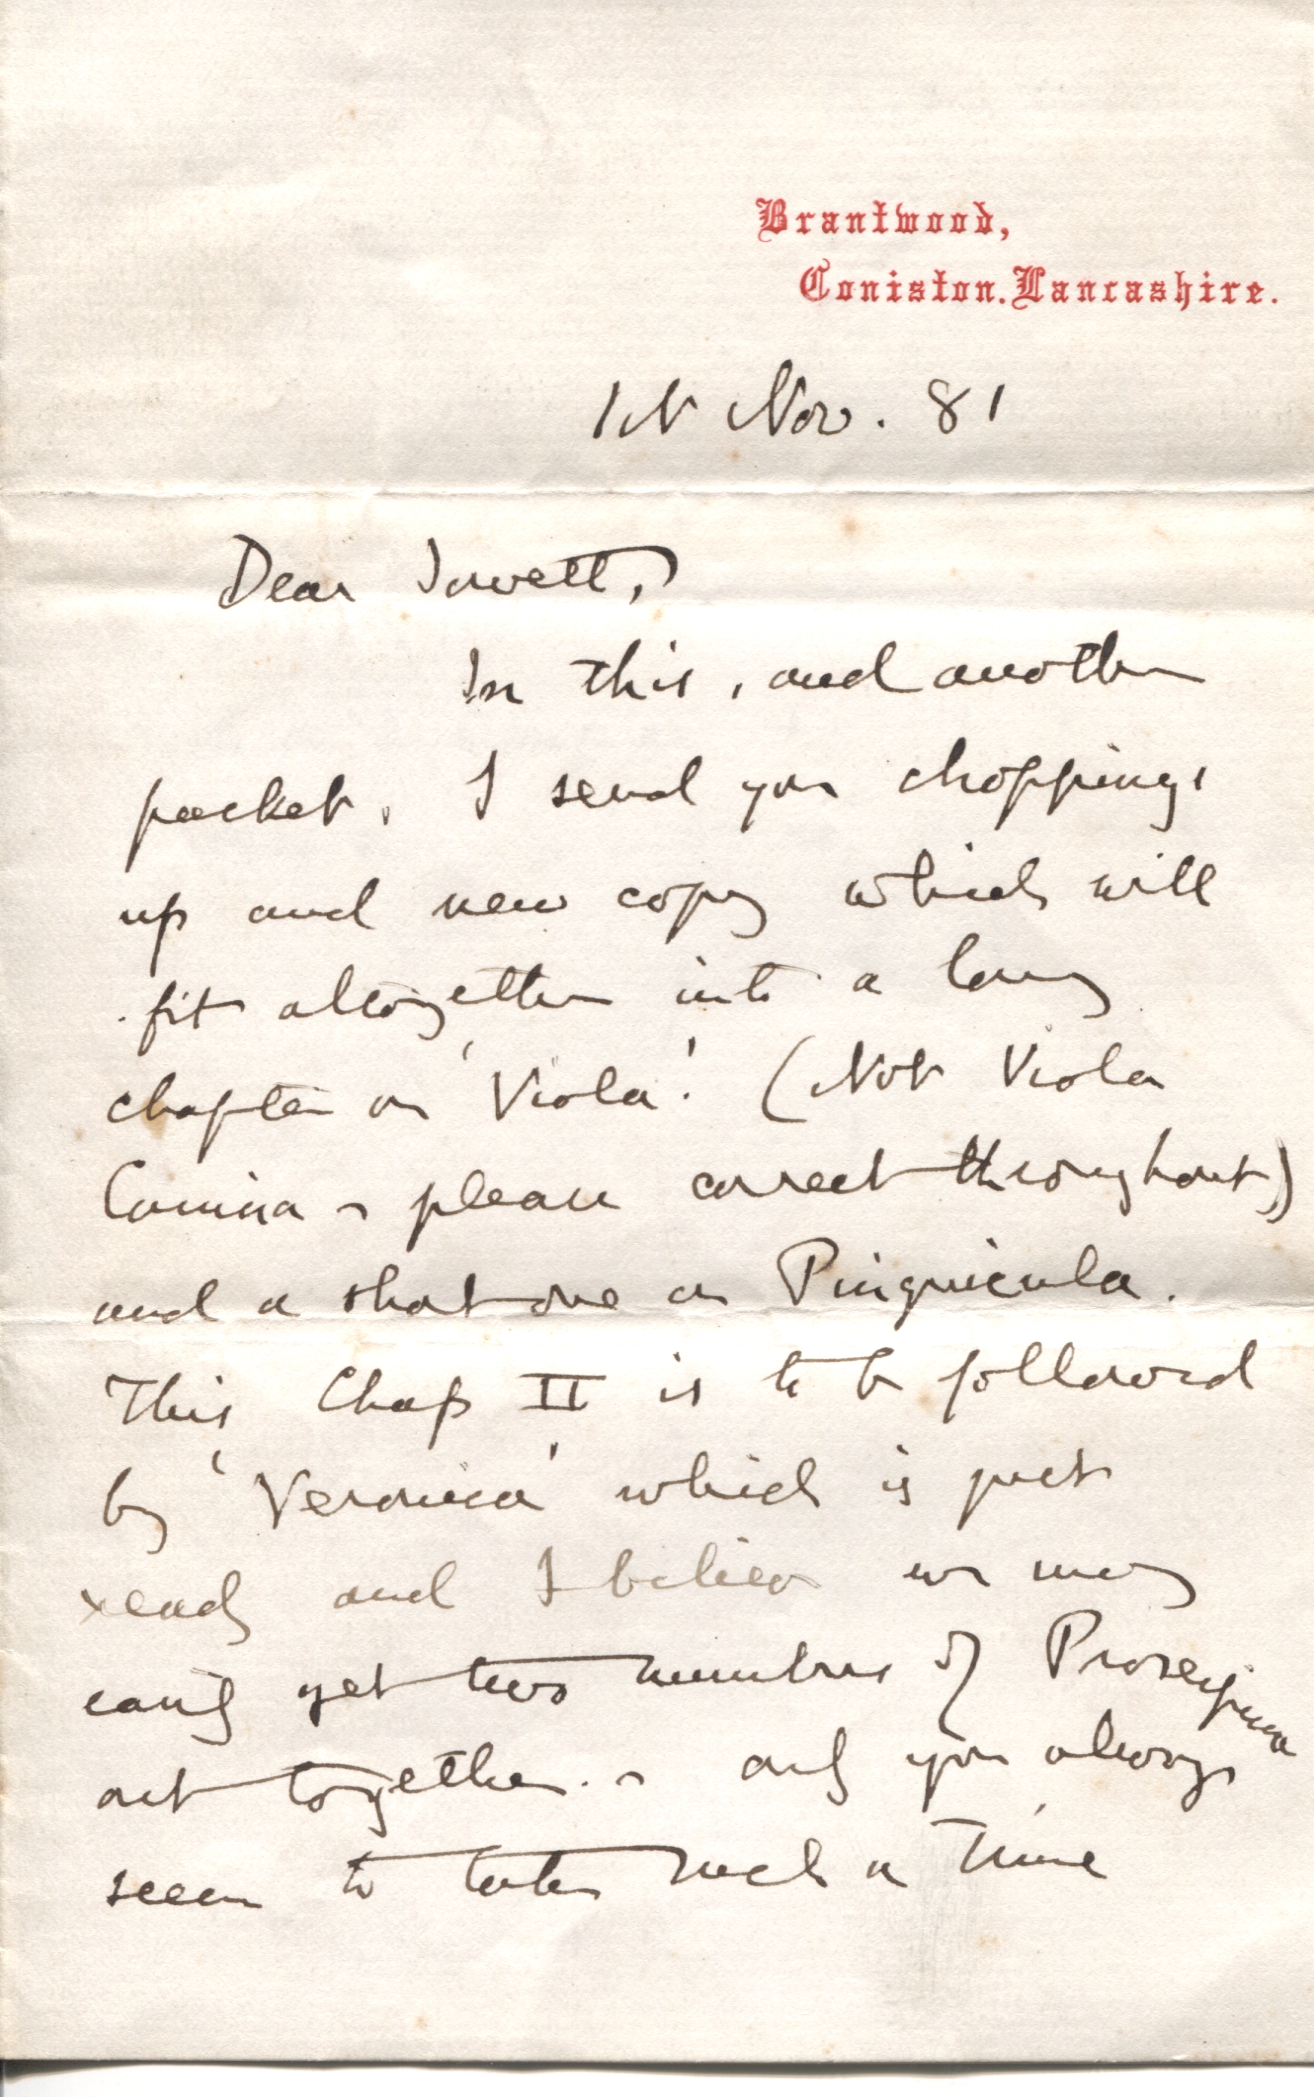 Brantwood,
Coniston. Lancashire.
1st Nov. 81
Dear Jowett,
In this, and another
packet, I send you choppings
up and new copy which will
fit altogether into a long
chapter on 'Viola'. (Not Viola
Canina - please correct throughout)
and a short one on Pinguicula.
This Chap II is to be followed
by 'Veronica' which is just
ready and I believe we may
easily get two numbers of Proserpina
out together. - only you always
seem to take such a time